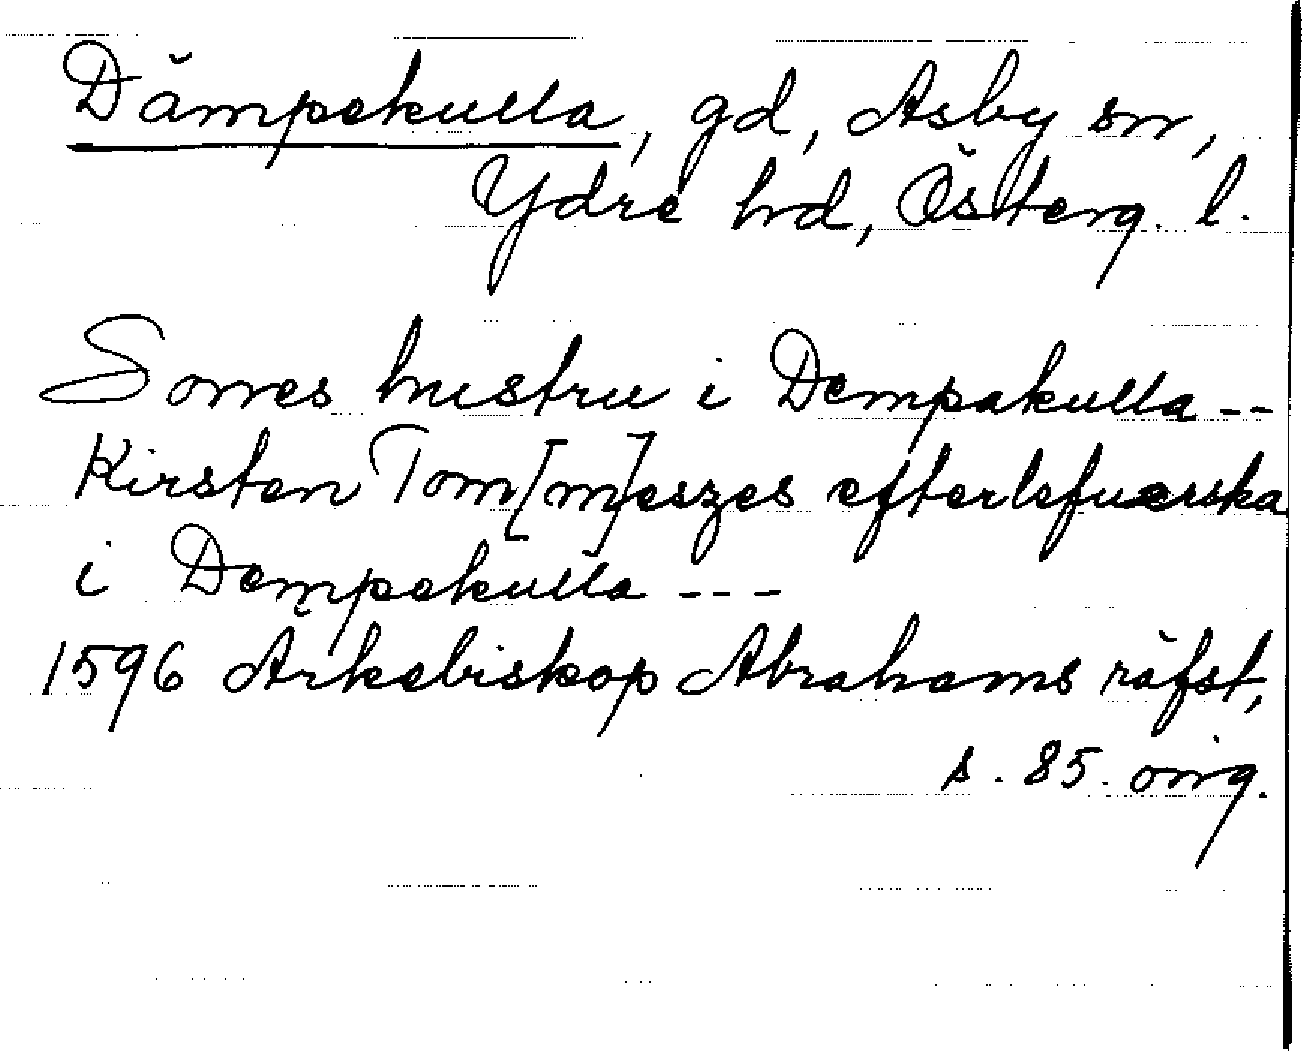 Dämpekulla, gd, Asby sn,
Ydre hd, Österg. l.
Somes hustru i Dempakulla --
Kirsten Tom[m]eszes efterlefuerska
i Dempekulla ---
1596 Ärkebiskop Abrahams räfst,
s. 85. orig.